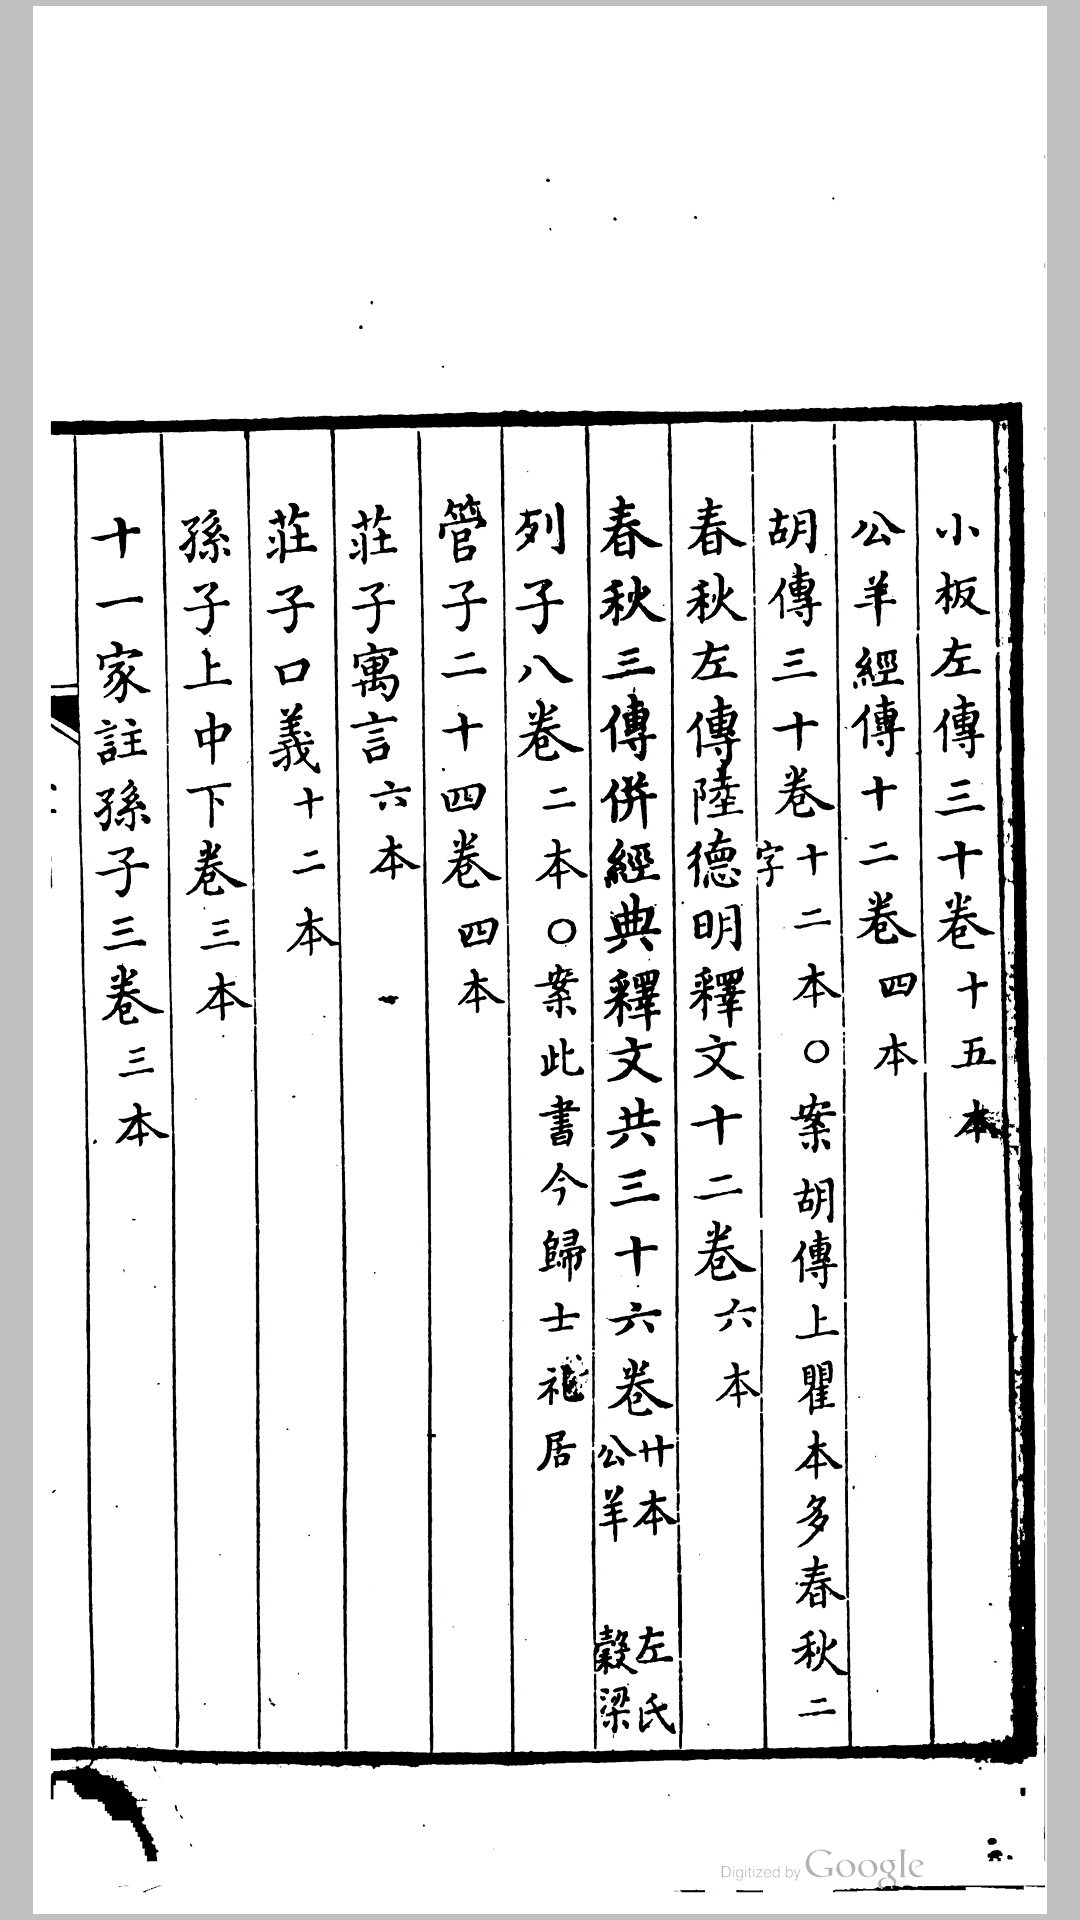 小板左傳三十卷十五本
公羊經傳十二卷四本
胡傳三十卷十二本○案胡傳上瞿本多春秋二
字
春秋左傳陸德明釋文十二卷六本
春秋三傳併經典釋文共三十六卷廿本　左氏
公羊　穀梁
列子八卷二本○案此書今歸士禮居
管子二十四卷四本
莊子寓言六本
莊子口義十二本
孫子上中下卷三本
十一家註孫子三卷三本
Digitized by Google